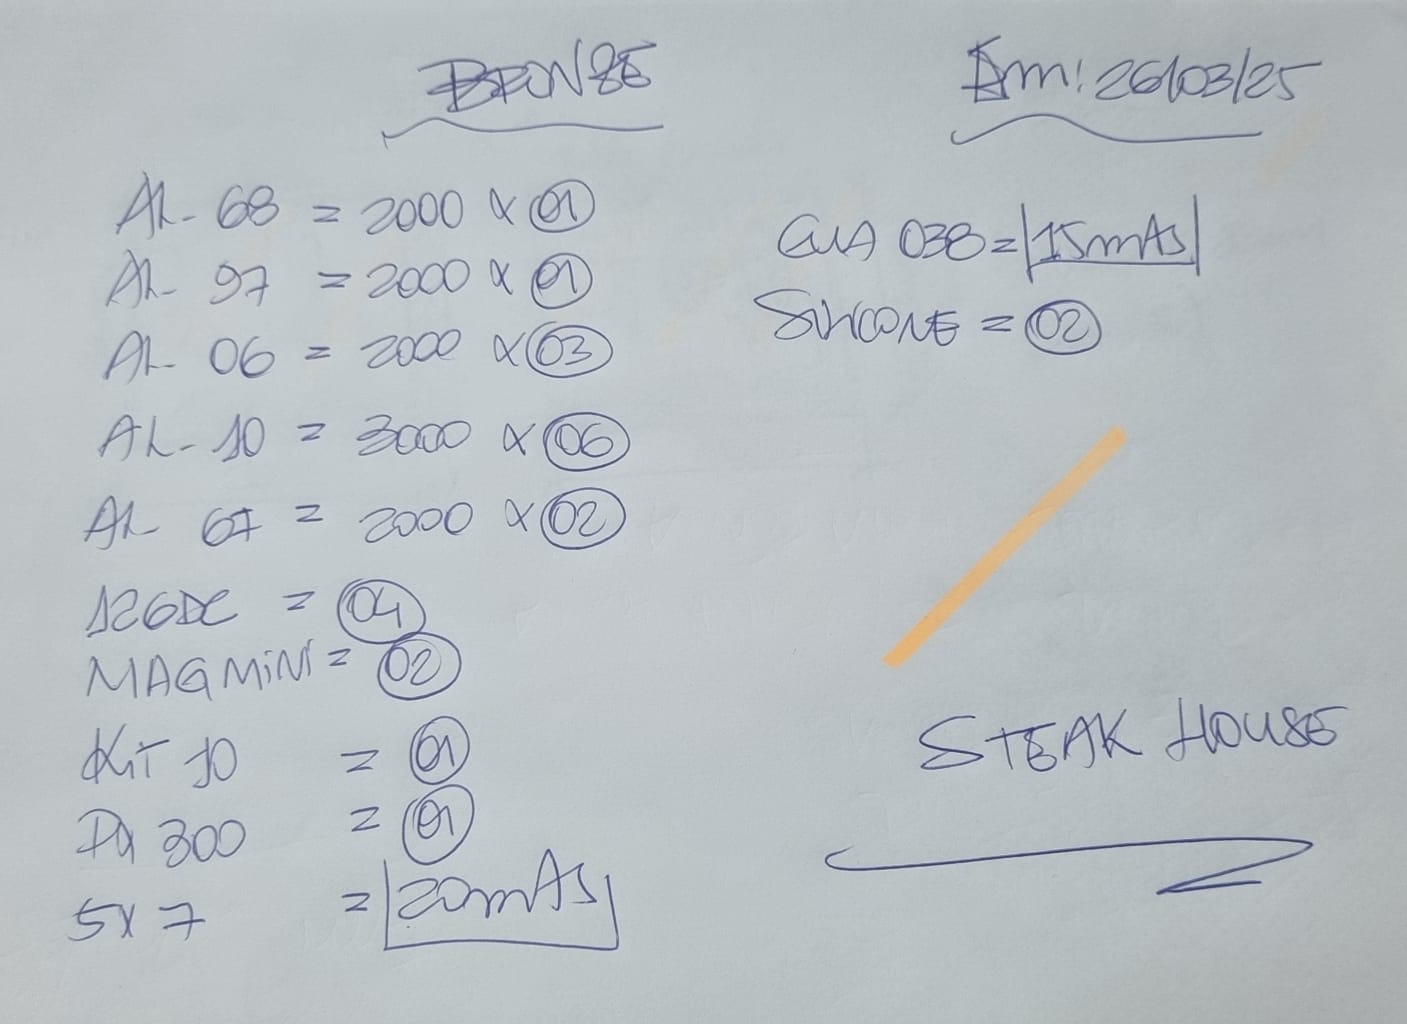 BRONZE
Em: 26/03/25
AL- 68 = 2000 x 01
AL- 97 = 2000 x 01
AL- 06 = 2000 x 03
AL- 10 = 3000 x 06
AL 67 = 2000 x 02
126DC = 04
MAGMiNi = 02
KiT 10 = 01
300 = 01
5x7 = 20mts
GUA 038 = 15mts
SiLiCONE = 02
STEAK HOUSE